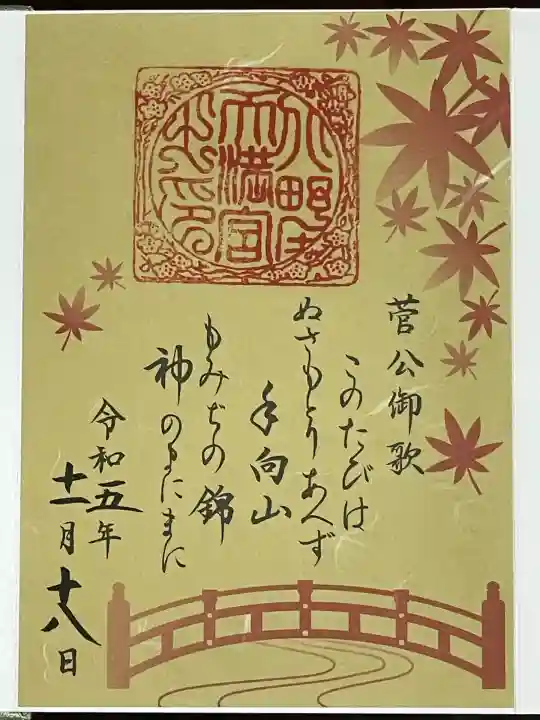 菅公御歌
このたびは
ぬさもとりあへず
手向山
もみぢの錦
神のまにまに
令和五年
十一月十八日
天満宮